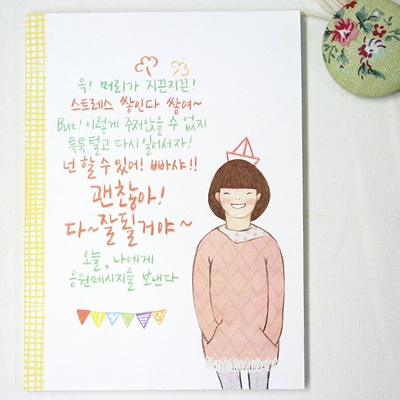 윽! 머리가 지끈지끈!
스트레스 쌓인다 쌓여~
But! 이렇게 주저앉을 수 없지
툭툭 털고 다시 일어서자!
넌 할 수 있어! 빠샤!!
괜찮아!
다~잘될거야~
오늘, 나에게
응원메시지를 보낸다